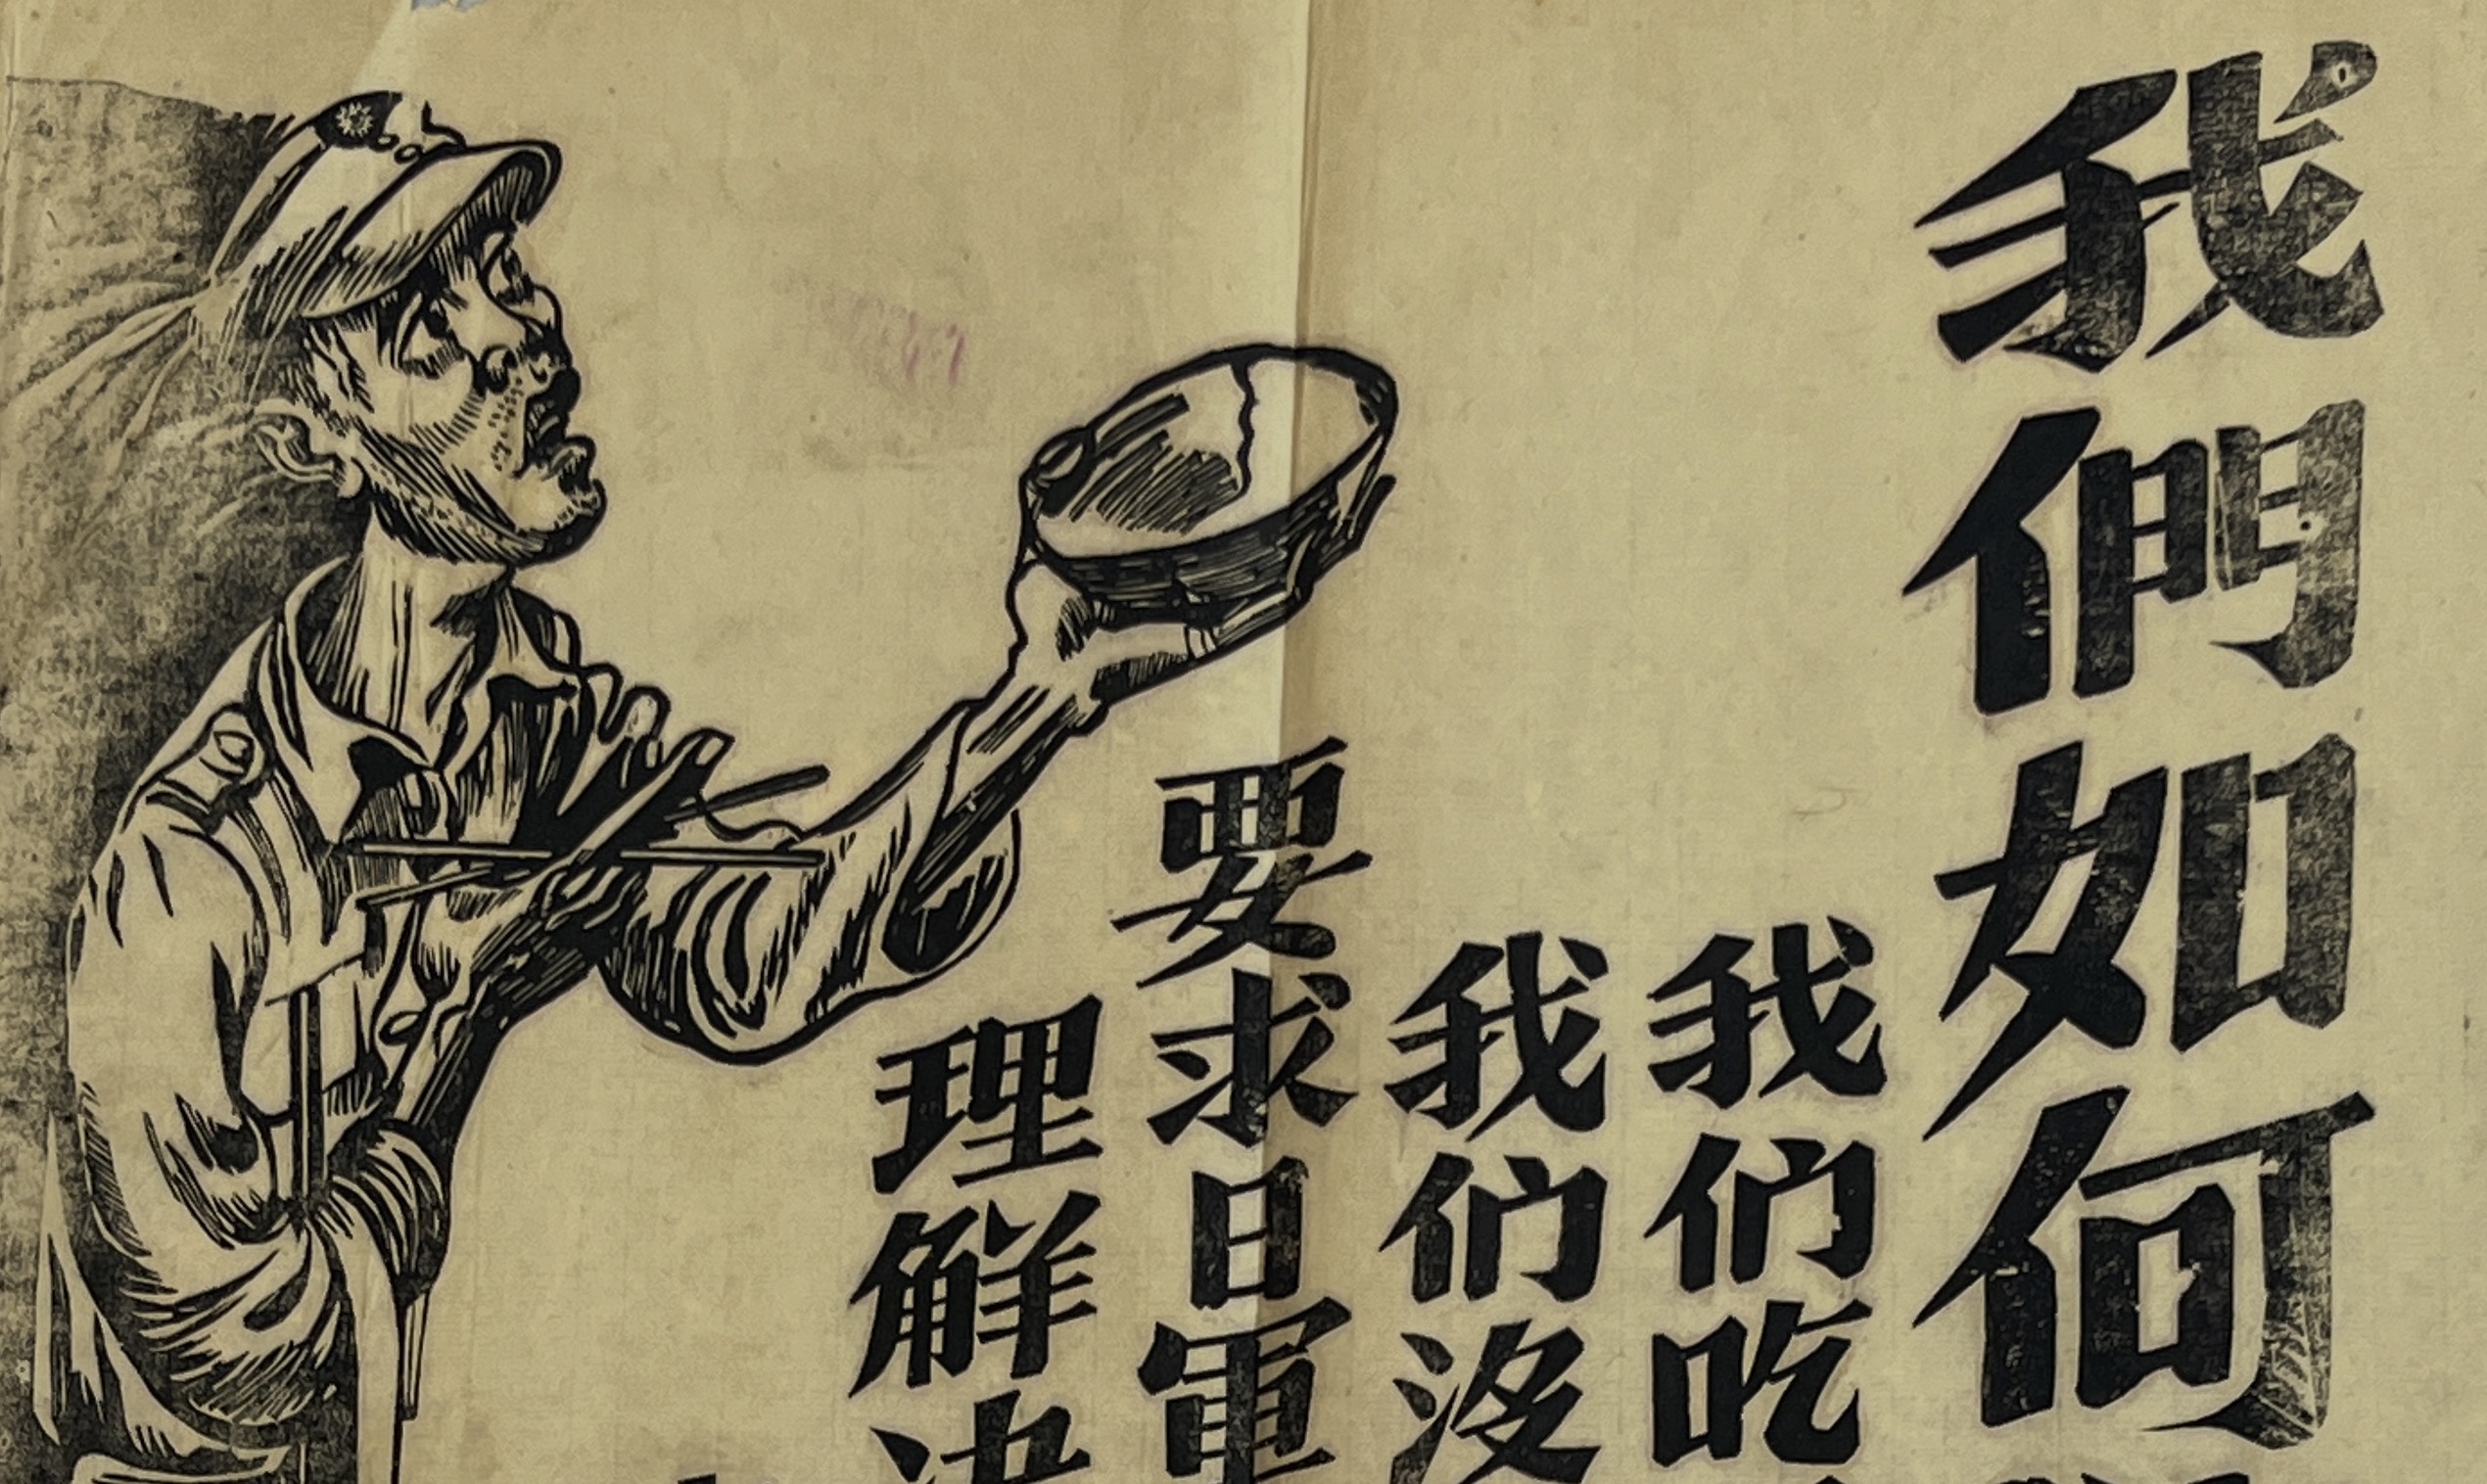 我們如何
我们吃
我们沒
要求日軍
理觧